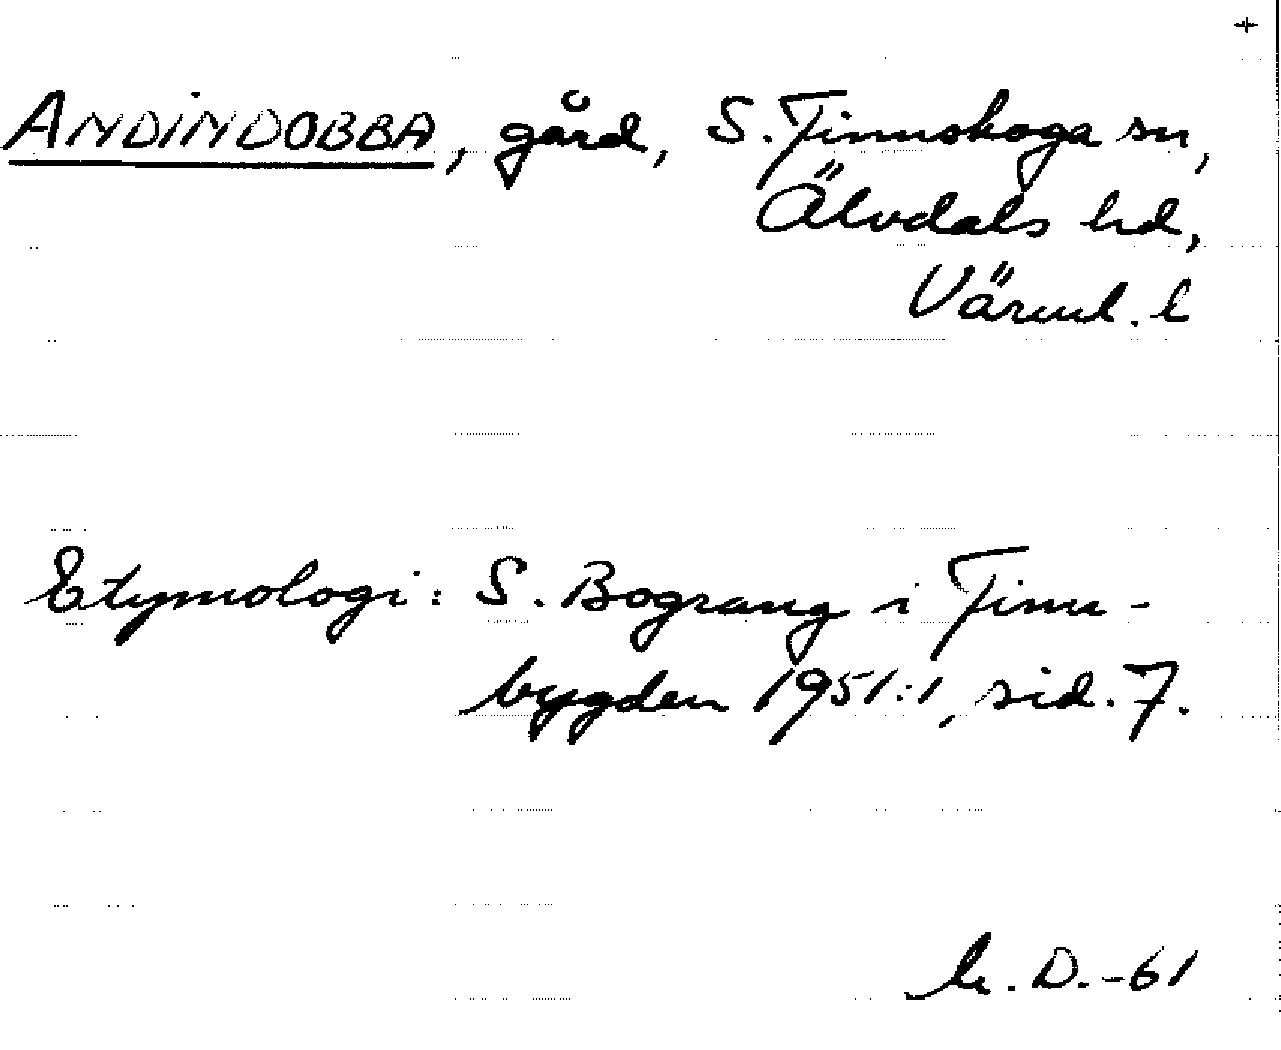 +
ANDINDOBBA, gård, S. Finnskoga sn,
Älvdals hd,
Värml. l
Etymologi: S. Bograng i Finn-
bygden 1951:1, sid. 7.
D. -61